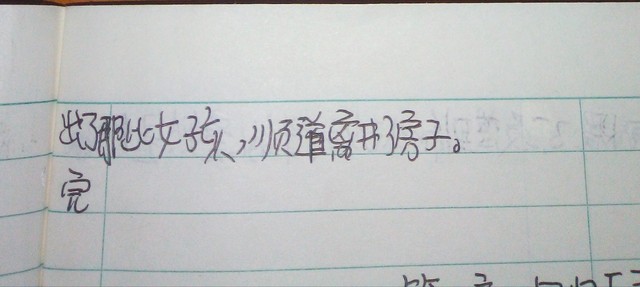 出了那些女孩,顺道离开了房子。
完